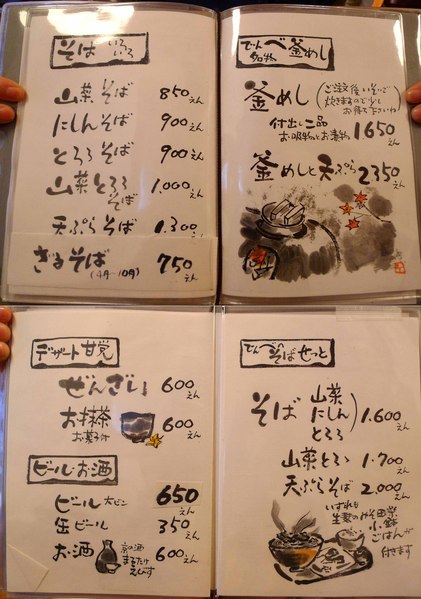 そばいろいろ
山菜そば 850えん
にしんそば 900えん
とろろそば 900えん
山菜とろろそば 1,000えん
天ぷらそば 1,300えん
ざるそば(4月~10月) 750えん
でんべ釜めし
名物
釜めし
(ご注文後いそいで
炊きますので少し
お待ち下さいね)
付出し二品
お吸物とお漬物 1650えん
釜めしと天ぷら 2350えん
デザート甘党
ぜんざい 600えん
お抹茶 600えん
お菓子付
ビール・お酒
ビール 大ビン 650えん
缶ビール 350えん
お酒 600えん
京の酒
まるたけ
えびす
でんべのそばせっと
そば
山菜
にしん
とろろ
1,600えん
山菜とろろ 1,700えん
天ぷらそば 2,000えん
いずれも
生麩のみそ田楽
小鉢
ごはんが
付きます